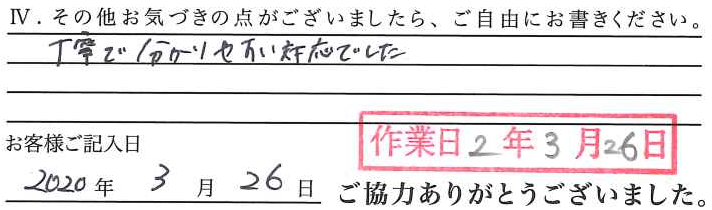 Ⅳ．その他お気づきの点がございましたら、ご自由にお書きください。
丁寧で分かりやすい対応でした
お客様ご記入日
作業日2年3月26日
2020年 3月 26日 ご協力ありがとうございました。